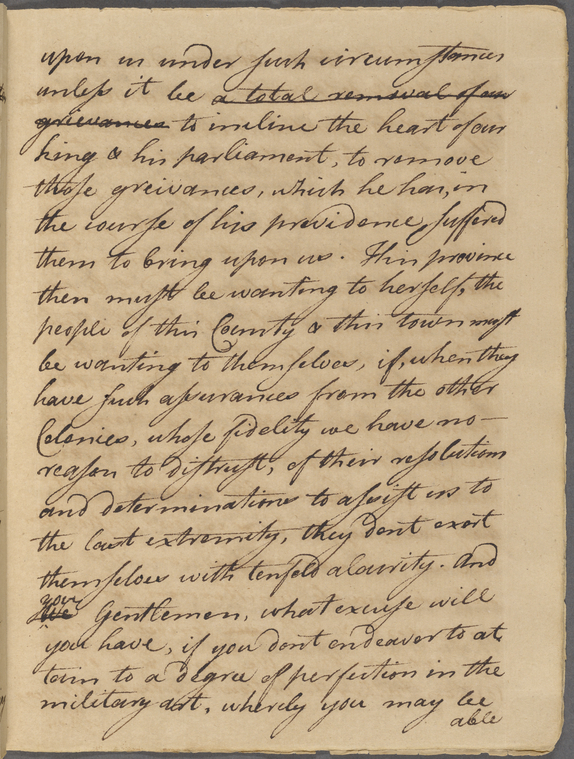 upon us under such circumstances
unless it be a total removal of our
grievances to incline the heart of our
king & his parliament, to remove
those greivances, which he has, in
the course of his providence, suffered
them to bring upon us. This province
then must be wanting to herself, the
people of this County & this town must
be wanting to themselves, if, when they
have such assurances from the other
Colonies, whose fidelity we have no
reason to distrust, of their resolutions
and determinations to assist us to
the last extremity, they dont exert
themselves with tenfold alacrity. And
you
Gentlemen, what excuse will
you have, if you dont endeavor to at
tain to a degree of perfection in the
military art, whereby you may be
able